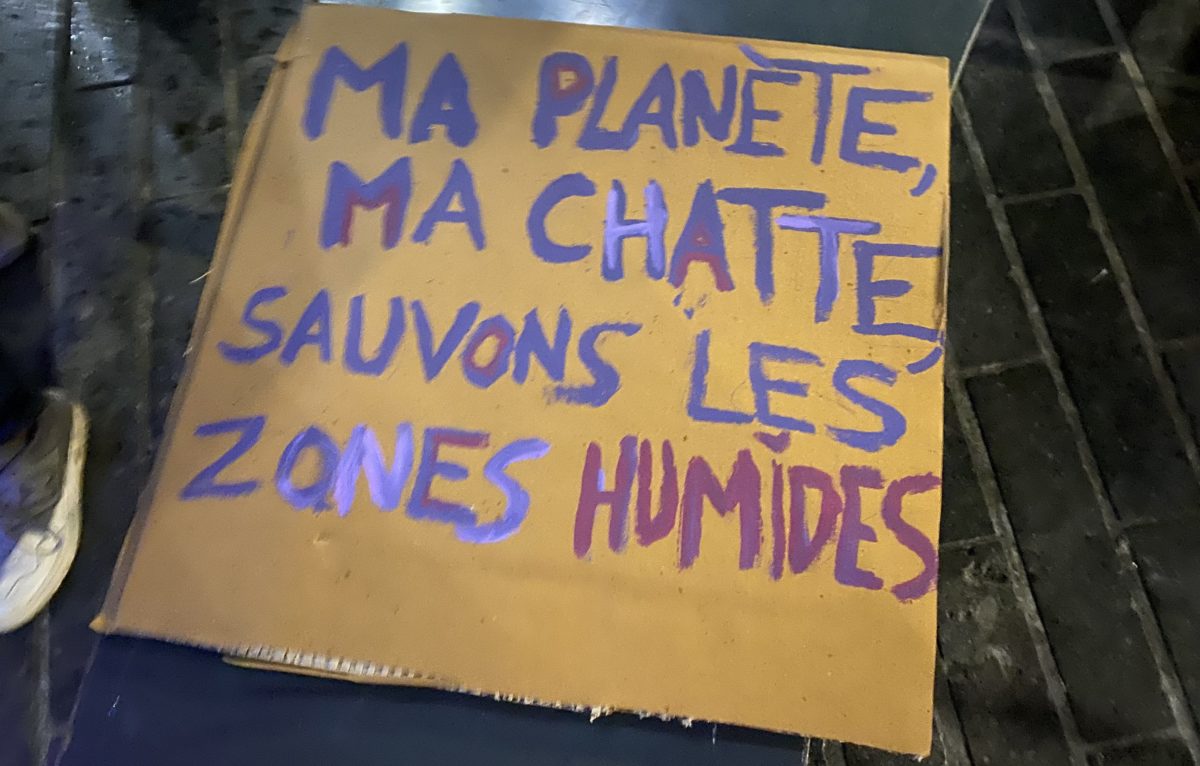 MA PLANÈTE,
MA CHATTE,
SAUVONS LES
ZONES HUMIDES